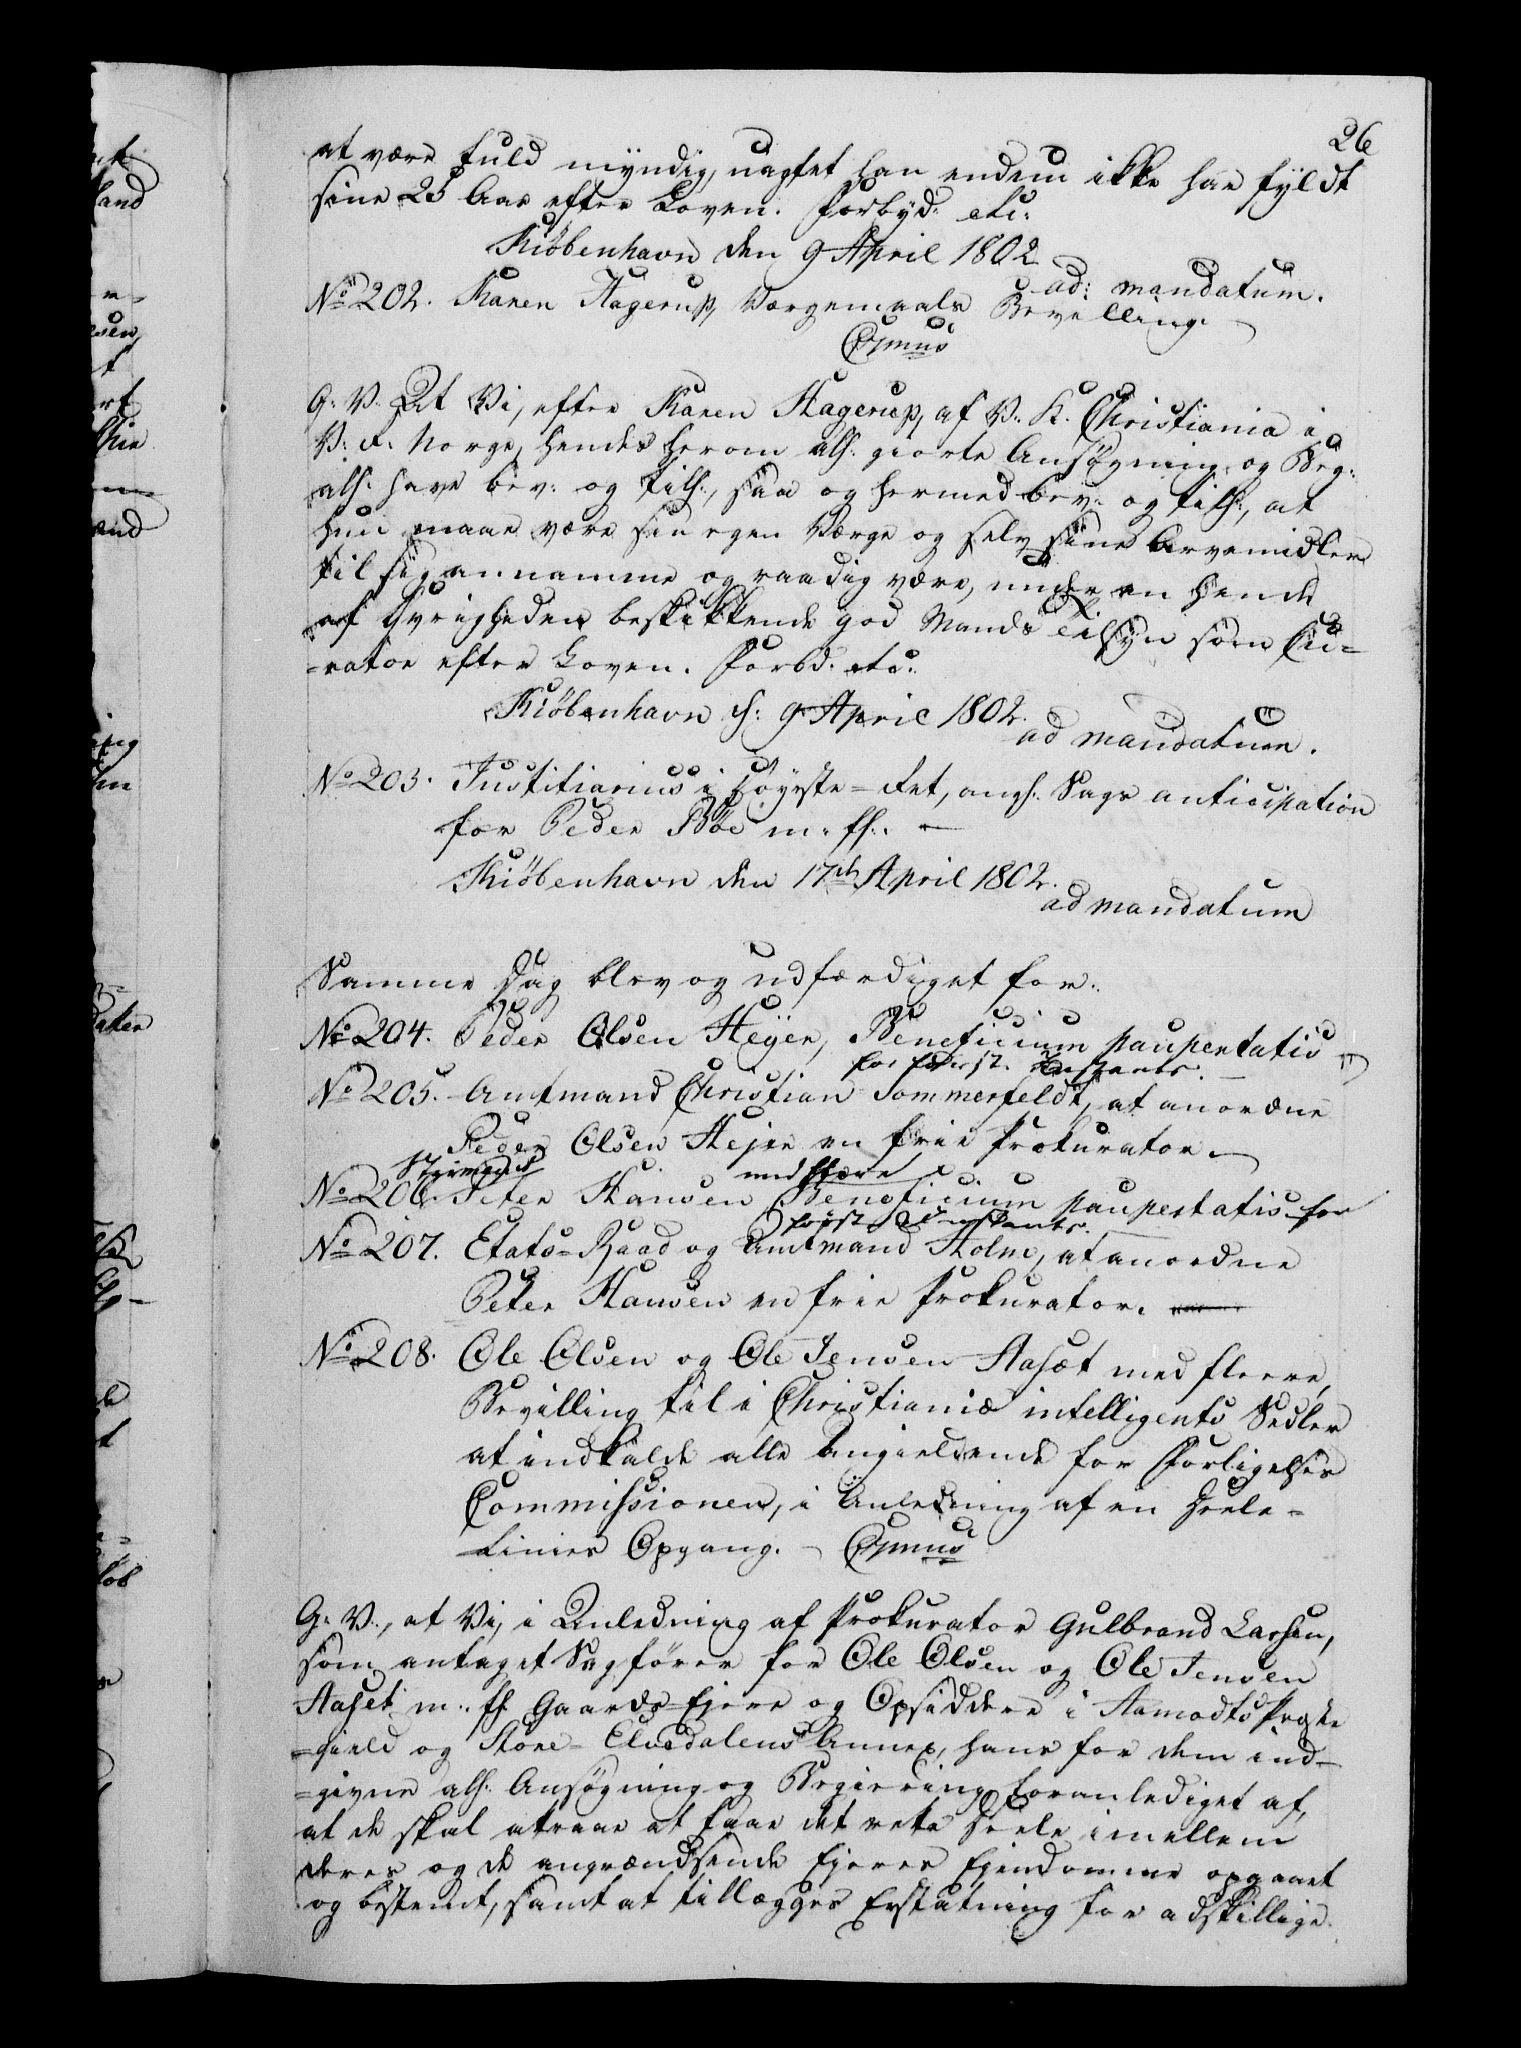 26
at være fuld myndig, uagtet han endnu ikke har fyldt
sine 25 Aar efter Loven. Forbyd: etc:
Kiöbenhavn den 9 April 1802.
ad: mandatum.
No 202. Karen Hagerup, Værgemaals Bevilling.
G: V: At Vi, efter Karen Hagerup, af V: K: Christiania i
V: R: Norge, hendes herom alh: giorte Ansøgning og Beg:
alh: have bev: og tilh:, saa og hermed bev: og tilh:, at
hun maae være sin egen Værge og selv sine Arvemidler
til sig annamme og raadig være, under en hende
af Øvrigheden beskikkende god Mands Tilsyn som Cu-
-rator efter Loven. Forbd: etc:
Kiöbenhavn d: 9 April 1802.
ad mandatum.
No 203. Justitiarius i Høyeste-Ret, angl: Sags anticipation
for Peder Böe m: fl:.
Kiöbenhavn den 17de April 1802.
ad mandatum
Samme Dag blev og udfærdiget for:
No 204. Peder Olsen Heyer, Beneficium paupertatis
for første Instants.
No 205. Amtmand Christian Sommerfeldt, at anordne
Peder Olsen Hejer en frie Prokurator.
Styrmand med flere
No 206. Peter Hansen Beneficium paupertatis for
første Instants.
No 207. Etats-Raad og Amtmand Holm, at anordne
Peter Hansen en frie Prokurator.
No 208. Ole Olsen og Ole Jensen Aaset med fleere,
Bevilling til i Christianiæ intelligents Sedler
at indkalde alle Angieldende for Forligelses
Commissionen, i Anledning af en Deele-
Linies Opgang.
G: V:, at Vi, i Anledning af Prokurator Gulbrand Larsen,
som antaget Sagfører for Ole Olsen og Ole Jensen
Aaset m: fl: Gaards-Ejere og Opsiddere i Aamodts Præste
-gield og Store-Elvedalens Annex, hans for dem ind-
-givne alh: Ansøgning og Begiering foranlediget af,
at de skal attraae at faae det rette Deele imellem
deres og de angrændsende Ejeres Ejendomme opgaaet
og bestemt, samt at tillægges Erstatning for adskillige